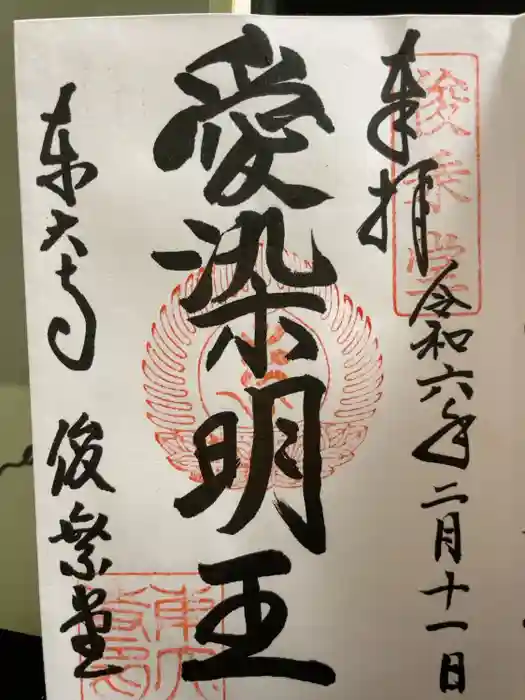 奉拝
俊乗堂
令和六年二月十一日
愛染明王
東大寺
俊乗堂